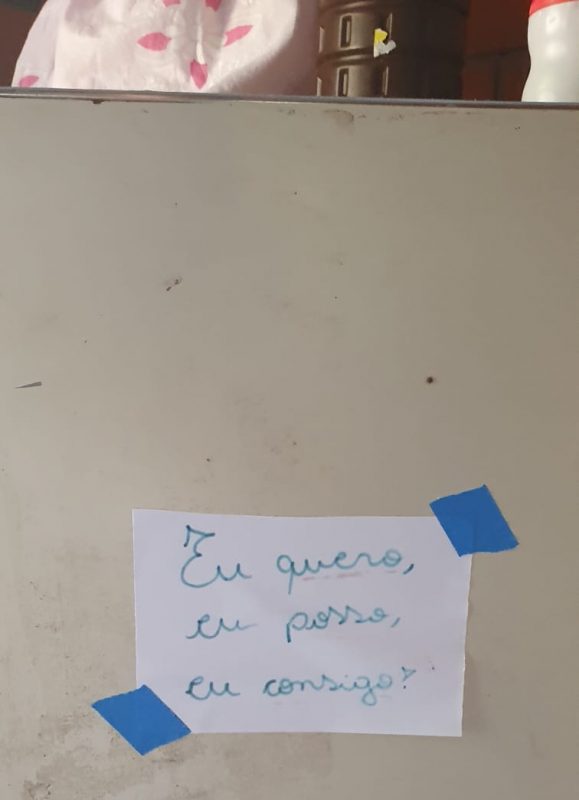 Eu quero,
eu posso,
eu consigo!